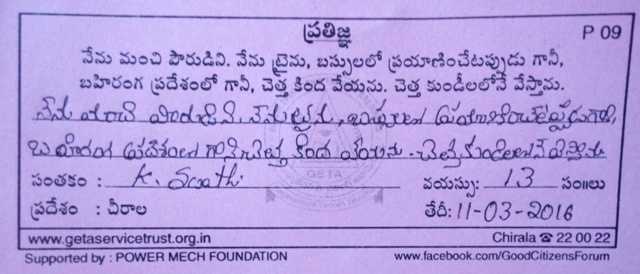 ప్రతిజ్ఞ
P 09
నేను మంచి పౌరుడిని. నేను ట్రైను, బస్సులలో ప్రయాణించేటప్పుడు గానీ,
బహిరంగ ప్రదేశంలో గానీ, చెత్త కింద వేయను. చెత్త కుండీలలోనే వేస్తాను.
నేను మంచి పౌరుడిని. నేను ట్రైను, బస్సులలో ప్రయాణించేటప్పుడు గానీ,
బహిరంగ ప్రదేశంలో గానీ చెత్త కింద వేయను. చెత్త కుండీలలోనే వేస్తాను
సంతకం : K. Swathi వయస్సు: 13 సం॥లు
ప్రదేశం : చీరాల తేదీ: 11-03-2016
GETA
www.getaservicetrust.org.in Chirala ☎ 22 00 22
Supported by : POWER MECH FOUNDATION www.facebook.com/GoodCitizensForum